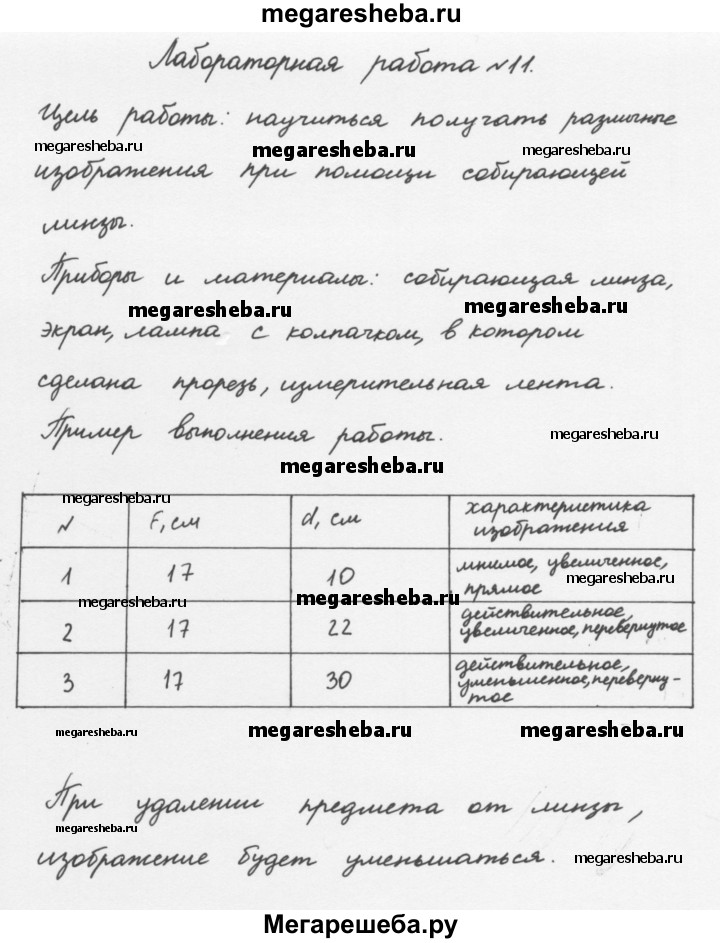 megaresheba.ru
Лабораторная работа №11.
Цель работы: научиться получать различные
megaresheba.ru megaresheba.ru megaresheba.ru
изображения при помощи собирающей
линзы.
Приборы и материалы: собирающая линза,
megaresheba.ru megaresheba.ru
экран, лампа с колпачком, в котором
сделана прорезь, измерительная лента.
Пример выполнения работы.
megaresheba.ru
megaresheba.ru
megaresheba.ru
№ F, см d, см характеристика
изображения
1 17 10 мнимое, увеличенное,
прямое
megaresheba.ru
megaresheba.ru megaresheba.ru
2 17 22 действительное,
увеличенное, перевернутое
3 17 30 действительное,
уменьшенное, переверну-
тое
megaresheba.ru megaresheba.ru megaresheba.ru
При удалении предмета от линзы,
megaresheba.ru
изображение будет уменьшаться.
megaresheba.ru
Мегарешеба.ру